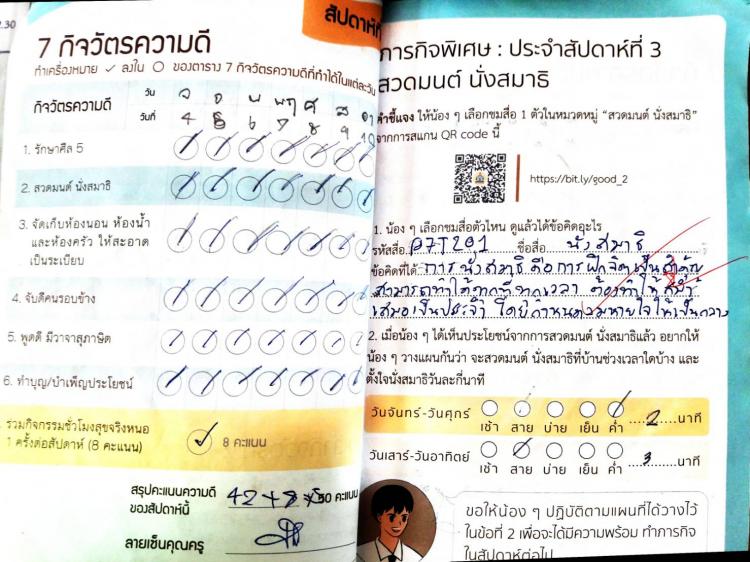 2.30
สัปดาห์ที่
7 กิจวัตรความดี
ทำเครื่องหมาย ✓ ลงใน ○ ของตาราง 7 กิจวัตรความดีที่ทำได้ในแต่ละวัน
กิจวัตรความดี
วัน จ อ พ พฤ ศ ส อา
วันที่ 4 5 6 7 8 9 10
1. รักษาศีล 5
2. สวดมนต์ นั่งสมาธิ
3. จัดเก็บห้องนอน ห้องน้ำ
และห้องครัว ให้สะอาด
เป็นระเบียบ
4. จับดีคนรอบข้าง
5. พูดดี มีวาจาสุภาษิต
6. ทำบุญ/บำเพ็ญประโยชน์
รวมกิจกรรมชั่วโมงสุขจริงหนอ
1 ครั้งต่อสัปดาห์ (8 คะแนน)
✓ 8 คะแนน
สรุปคะแนวความดี 42+8 50 คะแนน
ของสัปดาห์นี้
ลายเซ็นคุณครู
ภารกิจพิเศษ : ประจำสัปดาห์ที่ 3
สวดมนต์ นั่งสมาธิ
คำชี้แจง ให้น้อง ๆ เลือกชมสื่อ 1 ตัวในหมวดหมู่ “สวดมนต์ นั่งสมาธิ”
จากการสแกน QR code นี้
https://bit.ly/good_2
1. น้อง ๆ เลือกชมสื่อตัวไหน ดูแล้วได้ข้อคิดอะไร
รหัสสื่อ P7T291 ชื่อสื่อ นั่งสมาธิ
ข้อคิดที่ได้ การนั่งสมาธิ คือการฝึกจิตเป็นสำคัญ
สามารถทำได้ทุกที่ทุกเวลา ต้องทำให้สม่ำ
เสมอเป็นประจำ โดยกำหนดลมหายใจให้เป็นกลาง
2. เมื่อน้อง ๆ ได้เห็นประโยชน์จากการสวดมนต์ นั่งสมาธิแล้ว อยากให้
น้อง ๆ วางแผนกันว่า จะสวดมนต์ นั่งสมาธิที่บ้านช่วงเวลาใดบ้าง และ
ตั้งใจนั่งสมาธิวันละกี่นาที
วันจันทร์-วันศุกร์ เช้า สาย บ่าย เย็น ค่ำ 2 นาที
วันเสาร์-วันอาทิตย์ เช้า สาย บ่าย เย็น ค่ำ 3 นาที
ขอให้น้อง ๆ ปฏิบัติตามแผนที่ได้วางไว้
ในข้อที่ 2 เพื่อจะได้มีความพร้อม ทำภารกิจ
ในสัปดาห์ต่อไป